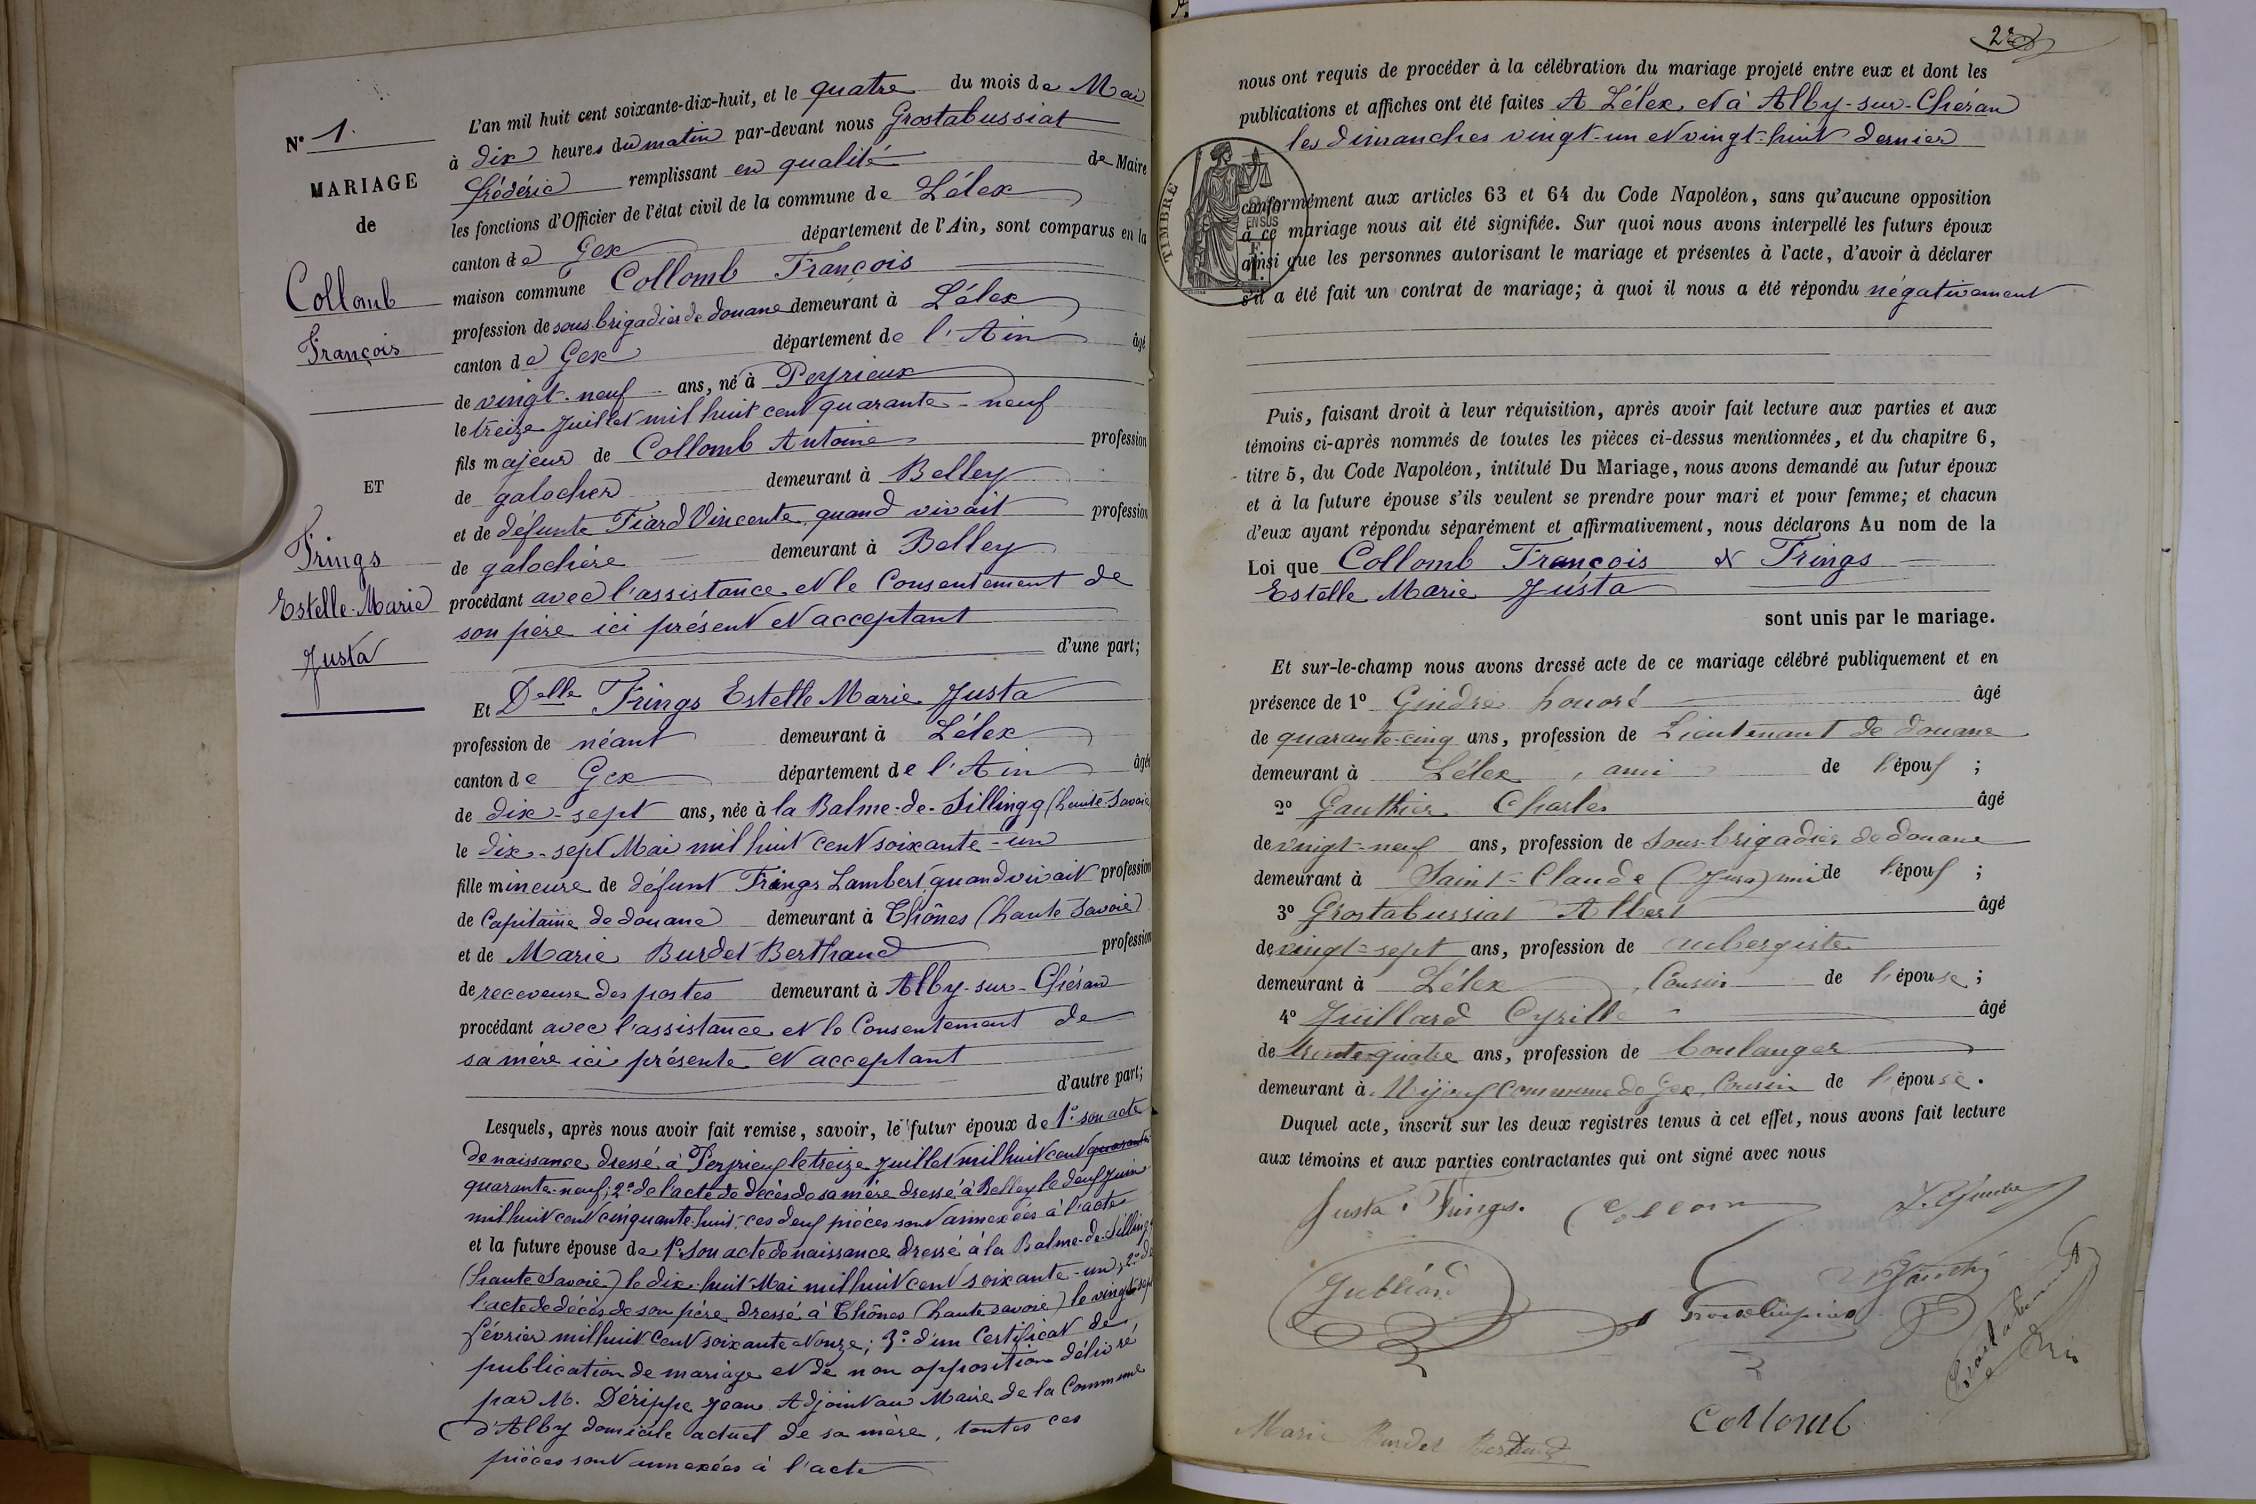 N° 1.
MARIAGE
de
Collomb
François
ET
Frings
Estelle-Marie
Justa
L'an mil huit cent soixante-dix-huit, et le quatre du mois de Mai
à dix heures du matin par-devant nous Grostabussiat
frédéric remplissant en qualité de Maire
les fonctions d'Officier de l'état civil de la commune de Lélex
canton de Gex département de l'Ain, sont comparus en la
maison commune Collomb François
profession de sous-brigadier de douane demeurant à Lélex
canton de Gex département de l'Ain âgé
de vingt-neuf ans, né à Peyrieux
le treize Juillet mil huit cent quarante-neuf
fils majeur de Collomb Antoine profession
de galocher demeurant à Belley
et de défunte Fiard Vincente quand vivait profession
de galochère demeurant à Belley
procédant avec l'assistance et le Consentement de
son père ici présent et acceptant
d'une part;
Et Delle Frings Estelle Marie Justa
profession de néant demeurant à Lélex
canton de Gex département de l'Ain âgée
de dix-sept ans, née à la Balme-de-Sillingg (haute-Savoie
le dix-sept Mai mil huit cent soixante-un
fille mineure de défunt Frings Lambert, quand vivait profession
de Capitaine de douane demeurant à Thônes (haute Savoie)
et de Marie Burdet Berthaud profession
de receveuse des postes demeurant à Alby-sur-Chéran
procédant avec l'assistance et le Consentement de
sa mère ici présente et acceptant
d'autre part;
Lesquels, après nous avoir fait remise, savoir, le futur époux de 1° son acte
de naissance dressé à Peyrieux le treize Juillet mil huit cent quarante
quarante-neuf; 2° de l'acte de décès de sa mère dressé à Belley le deux Juin
mil huit cent cinquante-huit; ces deux pièces sont annexées à l'acte
et la future épouse de 1° son acte de naissance dressé à la Balme-de-Silling
(haute Savoie) le dix-huit Mai mil huit cent soixante-un; 2° de
l'acte de décès de son père dressé à Thônes (haute savoie) le vingt-sept
février mil huit cent soixante et onze; 3° d'un Certificat de
publication de mariage et de non opposition délivré
par M. Dérippe Jean Adjoint au Maire de la Commune
d'Alby domicile actuel de sa mère, toutes ces
pièces sont annexées à l'acte
nous ont requis de procéder à la célébration du mariage projeté entre eux et dont les
publications et affiches ont été faites A Lélex et à Alby-sur-Chéran
les dimanches vingt-un et vingt-huit dernier
TIMBRE
EN SUS
conformément aux articles 63 et 64 du Code Napoléon, sans qu'aucune opposition
à ce mariage nous ait été signifiée. Sur quoi nous avons interpellé les futurs époux
ainsi que les personnes autorisant le mariage et présentes à l'acte, d'avoir à déclarer
s'il a été fait un contrat de mariage; à quoi il nous a été répondu négativement
Puis, faisant droit à leur réquisition, après avoir fait lecture aux parties et aux
témoins ci-après nommés de toutes les pièces ci-dessus mentionnées, et du chapitre 6,
titre 5, du Code Napoléon, intitulé Du Mariage, nous avons demandé au futur époux
et à la future épouse s'ils veulent se prendre pour mari et pour femme; et chacun
d'eux ayant répondu séparément et affirmativement, nous déclarons Au nom de la
Loi que Collomb François & Frings
Estelle Marie Justa
sont unis par le mariage.
Et sur-le-champ nous avons dressé acte de ce mariage célébré publiquement et en
présence de 1° Gindre honoré âgé
de quarante-cinq ans, profession de Lieutenant de douane
demeurant à Lélex, ami de l'époux;
2° Gauthier Charles âgé
de vingt-neuf ans, profession de Sous-brigadier de douane
demeurant à Saint-Claude (Jura) ami de l'époux;
3° Grostabussiat Albert âgé
de vingt-sept ans, profession de aubergiste
demeurant à Lélex, Cousin de l'épouse;
4° Juillard Cyrille âgé
de trente-quatre ans, profession de boulanger
demeurant à Mijoux Commune de Gex, Cousin de l'épouse.
Duquel acte, inscrit sur les deux registres tenus à cet effet, nous avons fait lecture
aux témoins et aux parties contractantes qui ont signé avec nous
Justa Frings. Collom
Gauthi
Collomb
Marie Burdet Bertaud